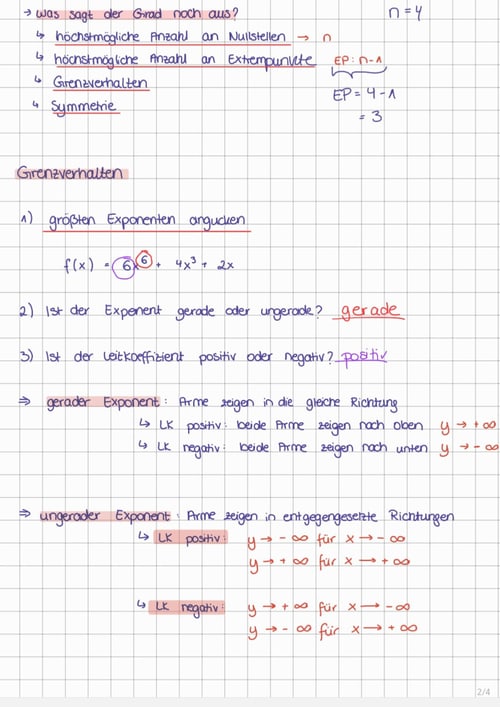 → was sagt der Grad noch aus? n = 4
↳ höchstmögliche Anzahl an Nullstellen → n
↳ höchstmögliche Anzahl an Extrempunkte EP: n-1
↳ Grenzverhalten EP = 4 - 1
↳ Symmetrie = 3
Grenzverhalten
1) größten Exponenten angucken
f(x) = 6x⁶ + 4x³ + 2x
2) Ist der Exponent gerade oder ungerade? gerade
3) Ist der Leitkoeffizient positiv oder negativ? positiv
⇒ gerader Exponent: Arme zeigen in die gleiche Richtung
↳ LK positiv: beide Arme zeigen nach oben y → +∞
↳ LK negativ: beide Arme zeigen nach unten y → -∞
⇒ ungerader Exponent: Arme zeigen in entgegengesetzte Richtungen
↳ LK positiv: y → -∞ für x → -∞
y → +∞ für x → +∞
↳ LK negativ: y → +∞ für x → -∞
y → -∞ für x → +∞
2/4